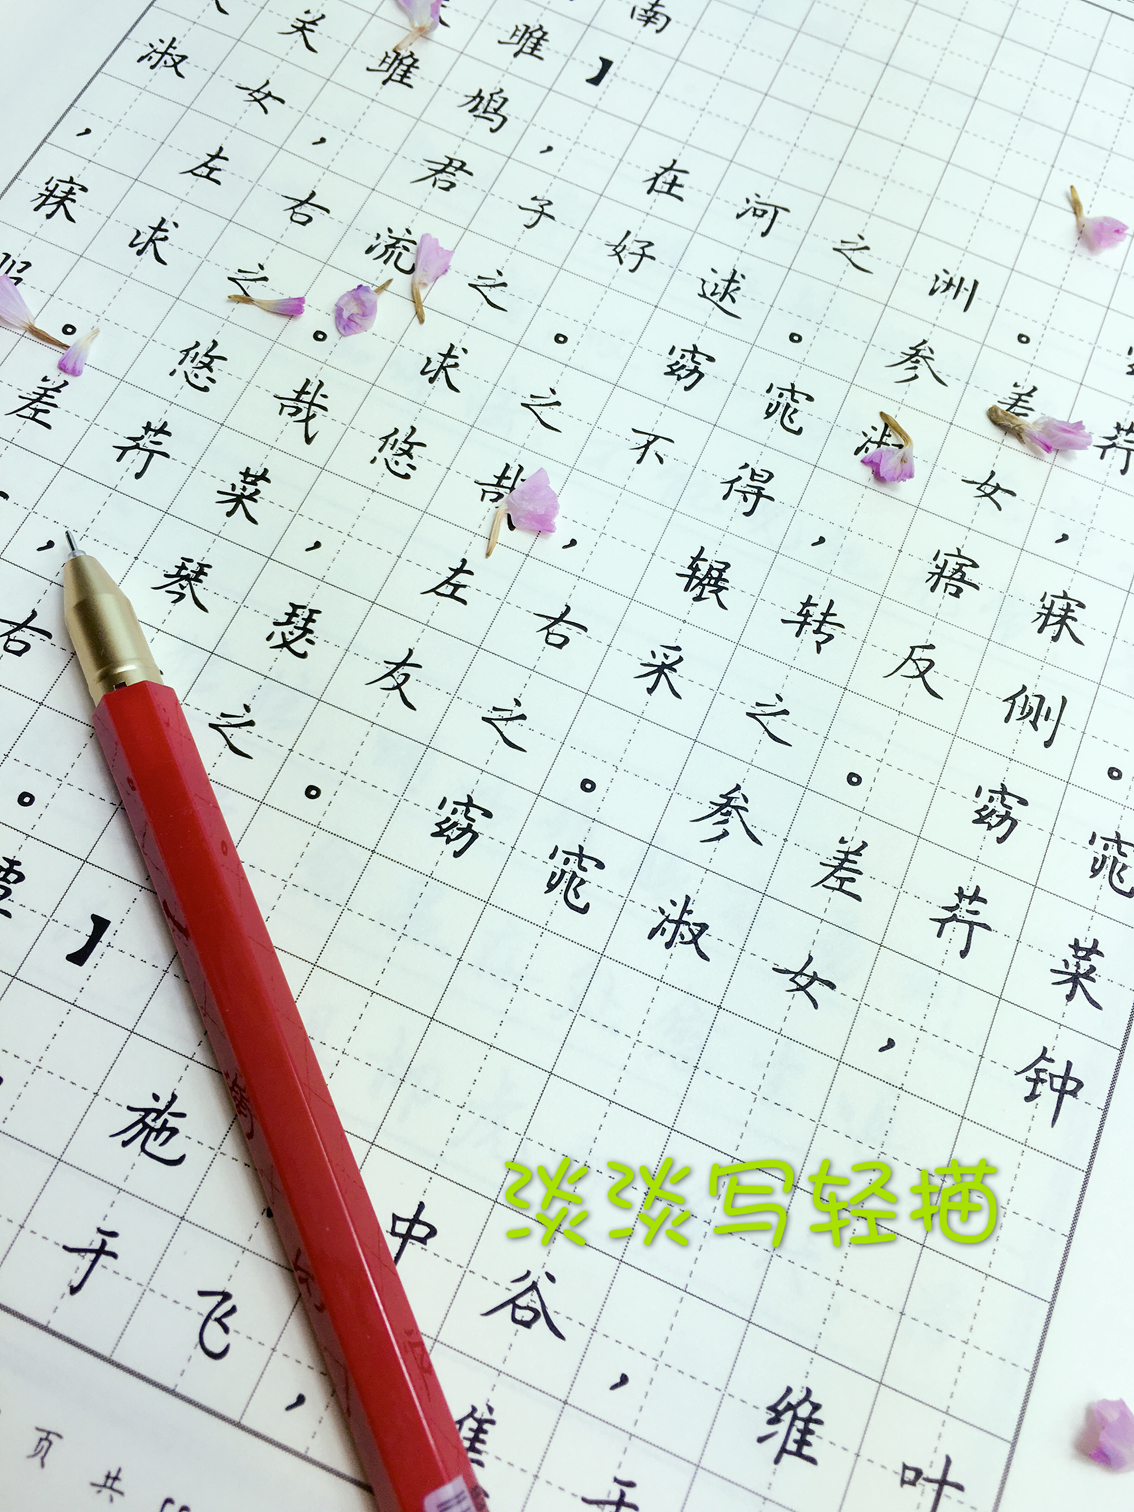 南
雎】
关雎鸠，在河之洲。
淑女，君子好逑。参差荇
，左右流之。窈窕淑女，
寐求之。求之不得，寤寐
。悠哉悠哉，辗转反侧。
差荇菜，左右采之。窈窕
，琴瑟友之。参差荇菜
右之。窈窕淑女，钟
。
覃】
施中谷，维叶
于飞，集于
页 共
淡淡写轻描